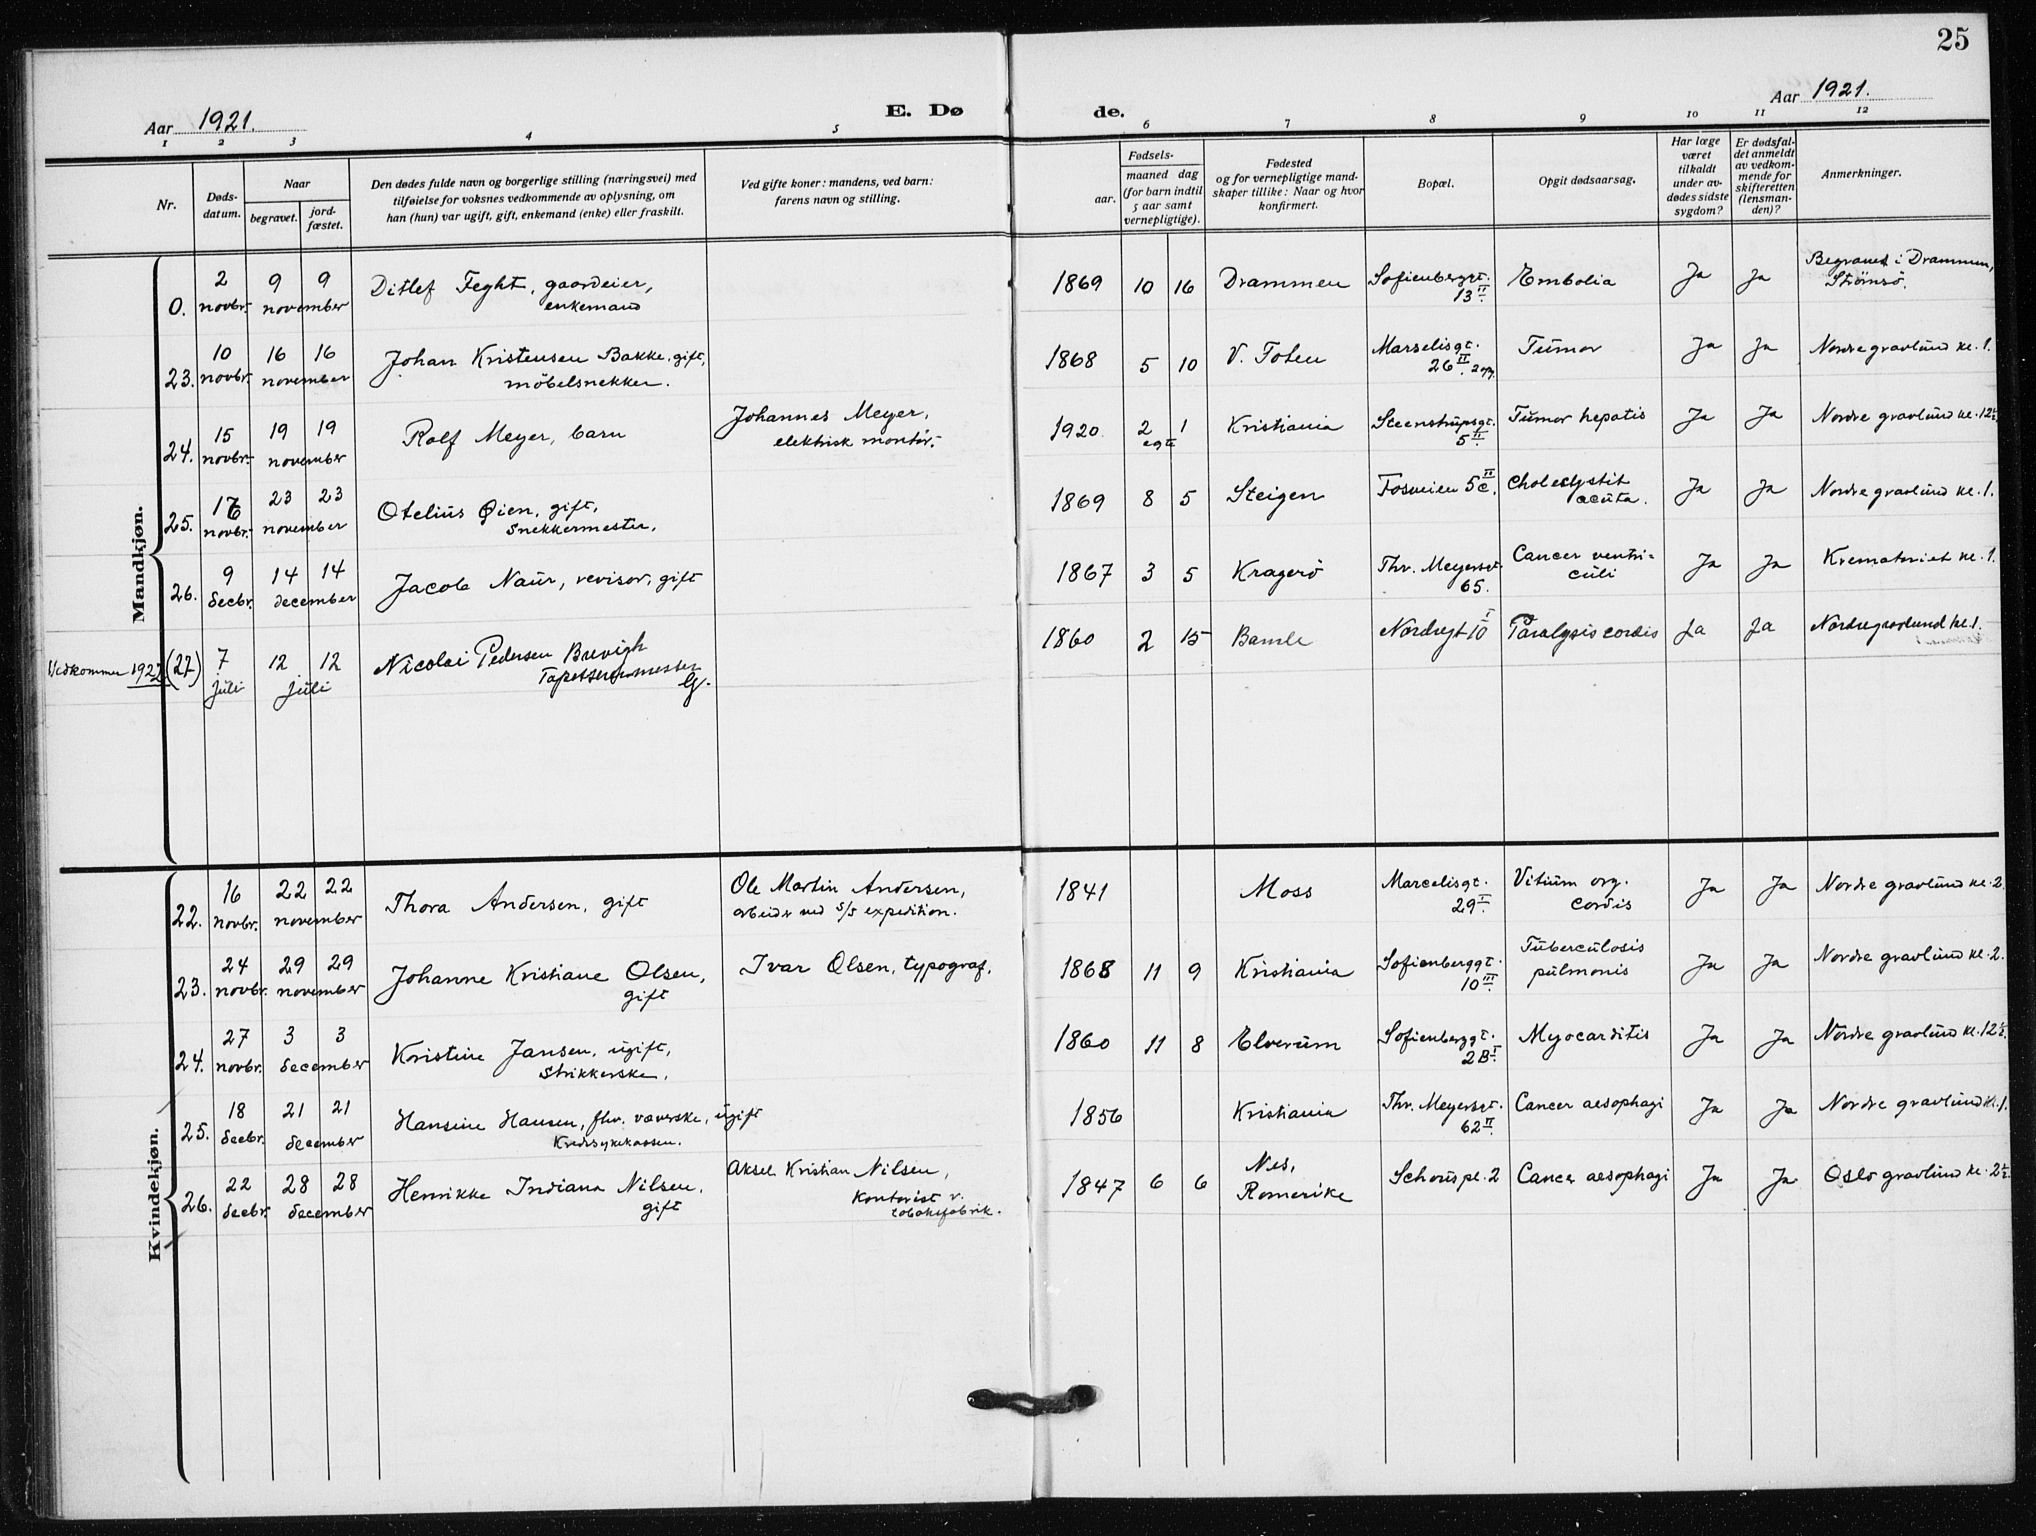 25
Aar 1921.
E. Dø de.
Aar 1921.
1 2 3 4 5 6 7 8 9 10 11 12
Nr.
Døds-
datum.
Naar
begravet.
jord-
fæstet.
Den dødes fulde navn og borgerlige stilling (næringsvei) med
tilføielse for voksnes vedkommende av oplysning, om
han (hun) var ugift, gift, enkemand (enke) eller fraskilt.
Ved gifte koner: mandens, ved barn:
farens navn og stilling.
Fødsels-
aar.
maaned dag
(for barn indtil
5 aar samt
vernepligtige).
Fødested
og for vernepligtige mand-
skaper tillike: Naar og hvor
konfirmert.
Bopæl.
Opgit dødsaarsag.
Har læge
været
tilkaldt
under av-
dødes sidste
sygdom?
Er dødsfal-
det anmeldt
av vedkom-
mende for
skifteretten
(lensman-
den)?
Anmerkninger.
Mandkjøn.
0. 2 novbr. 9 9 november Ditlef Feght, gaardeier,
enkemand
1869 10 16 Drammen Sofienberggt. 13 II. Embolia Ja Ja Begravet i Drammen,
Strømsø.
23. 10 novbr. 16 16 november Johan Kristensen Bakke, gift,
möbelsnekker.
1868 5 10 V. Toten Marselisgt. 26 II. 2 opg. Tumor Ja Ja Nordre gravlund kl. 1.
24. 15 novbr. 19 19 november Rolf Meyer, barn
Johannes Meyer,
elektrisk montör.
1920 2 1 egte Kristiania Steenstrupsgt. 5 II. Tumor hepatis Ja Ja Nordre gravlund kl. 12½
25. 16 novbr. 23 23 november Otelius Øien, gift,
snekkermester.
1869 8 5 Steigen Fosveien 5c II. Cholecystit
acuta. Ja Ja Nordre gravlund kl. 1.
26. 9 decbr. 14 14 december Jacob Naur, revisor, gift
1867 3 5 Kragerö Thv. Meyersgt. 65. Cancer ventri-
culi Ja Ja Krematoriet kl. 1.
Vedkommer 1922 (27) 7 juli 12 12 juli Nicolai Pedersen Brevigh
Tapetserermester
G.
1860 2 15 Bamle Nordregt 10 I Paralysis cordis Ja Ja Nordre gravlund kl. 1.
Kvindekjøn.
22. 16 novbr. 22 22 november Thora Andersen, gift
Ole Martin Andersen,
arbeider ved S/S expedition.
1841 Moss Marcelisgt. 29 I. Vitium org.
cordis Ja Ja Nordre gravlund kl. 2.
23. 24 novbr. 29 29 november Johanne Kristiane Olsen,
gift
Ivar Olsen, typograf.
1868 11 9 Kristiania Sofienberggt. 10 III. Tuberculosis
pulmonis Ja Ja Nordre gravlund kl. 2.
24. 27 novbr. 3 3 december Kristine Jansen, ugift,
strikkerske.
1860 11 8 Elverum Sofienberggt. 2B I. Myocarditis Ja Ja Nordre gravlund kl. 12½.
25. 18 decbr. 21 21 december Hansine Hansen, fhv. væverske, ugift
Kredssykekassen.
1856 Kristiania Thv. Meyersgt. 62 II. Cancer aesophagi Ja Ja Nordre gravlund kl. 1.
26. 22 decbr. 28 28 december Henrikke Indiana Nilsen,
gift
Aksel Kristian Nilsen,
kontorist v.
tobaksfabrik.
1847 6 6 Nes,
Romerike Schous pl. 2 Cancer aesophagi Ja Ja Oslo gravlund kl. 2½.